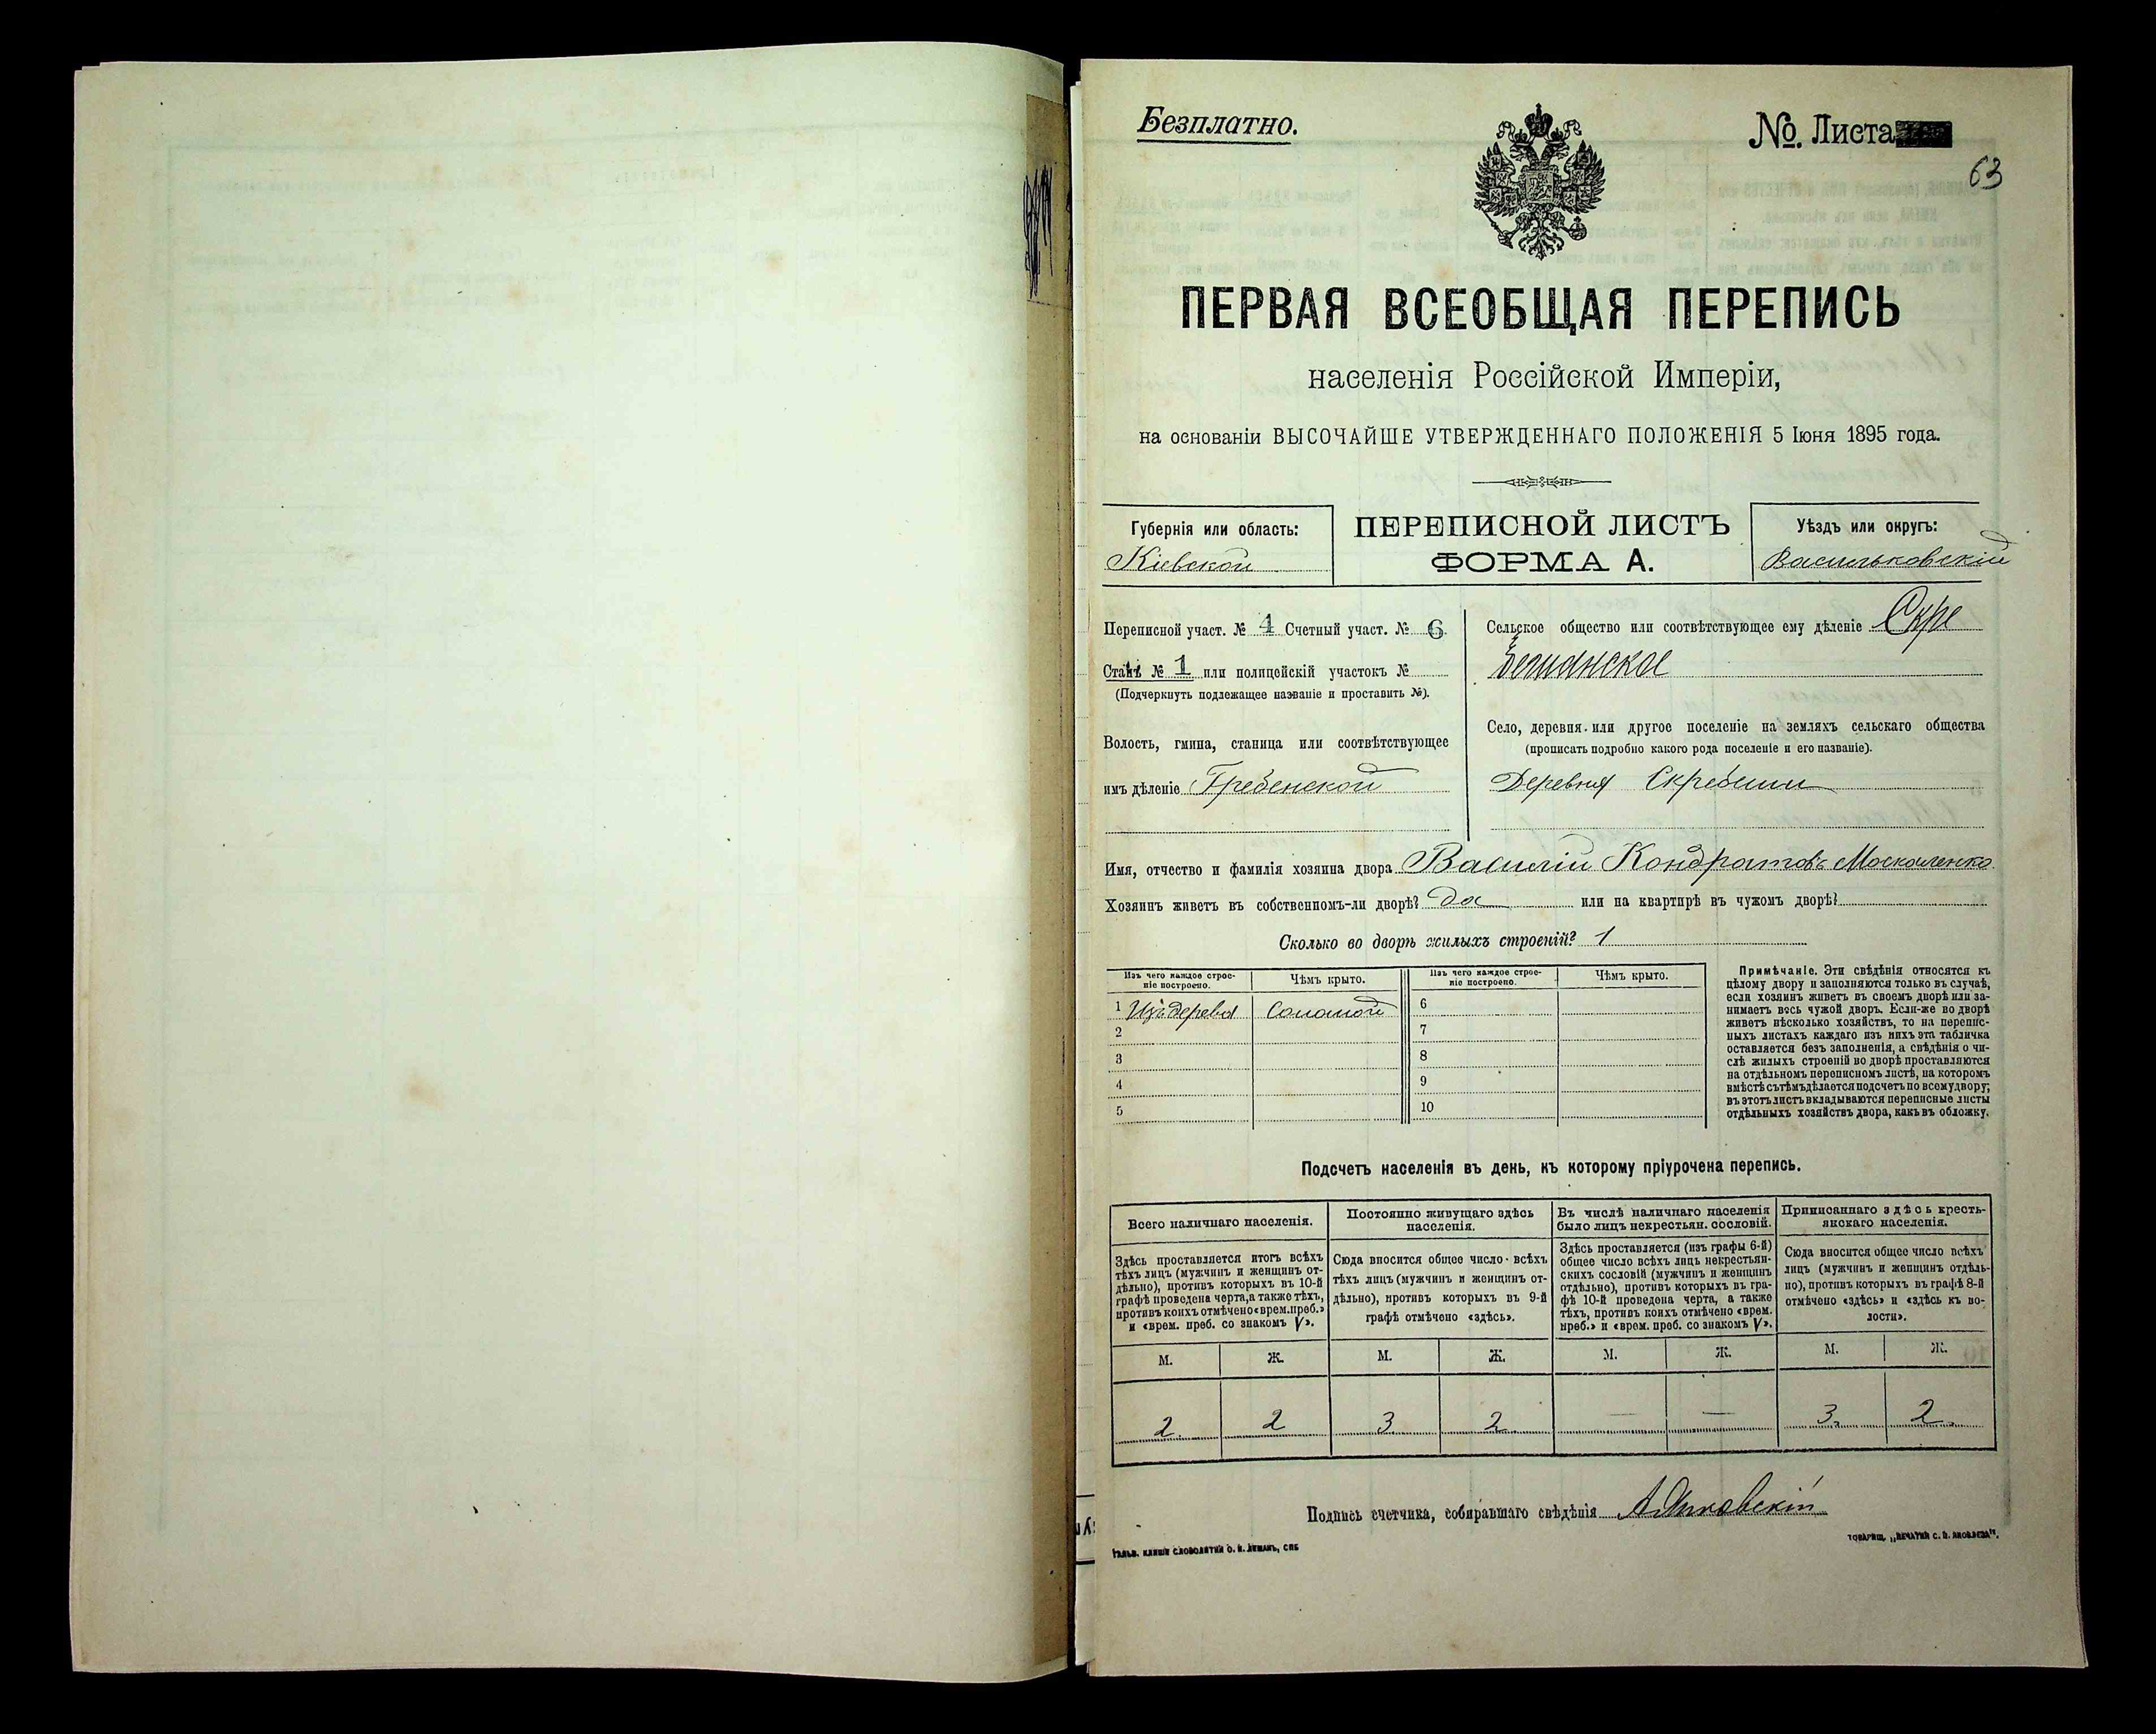 Безплатно.
№. Листа
63
ПЕРВАЯ ВСЕОБЩАЯ ПЕРЕПИСЬ
населенія Россійской Имперіи,
на основаніи ВЫСОЧАЙШЕ УТВЕРЖДЕННАГО ПОЛОЖЕНІЯ 5 Іюня 1895 года.
Губернія или область:
Кіевской
ПЕРЕПИСНОЙ ЛИСТЪ
ФОРМА А.
Уѣздъ или округъ:
Васильковскій
Переписной участ. № 4 Счетный участ. № 6
Станъ № 1 или полицейскій участокъ №
(Подчеркнуть подлежащее названіе и проставить №).
Волость, гмина, станица или соотвѣтствующее
имъ дѣленіе Гребенской
Сельское общество или соотвѣтствующее ему дѣленіе Скре
бешанское
Село, деревня или другое поселеніе на земляхъ сельскаго общества
(прописать подробно какого рода поселеніе и его названіе).
Деревня Скребеши
Имя, отчество и фамилія хозяина двора Василій Кондратовъ Москаленко
Хозяинъ живетъ въ собственномъ-ли дворѣ? да или на квартирѣ въ чужомъ дворѣ?
Сколько во дворѣ жилыхъ строеній? 1
Изъ чего каждое строе-
ніе построено.
Чѣмъ крыто.
1 Изъ дерева Соломой
2
3
4
5
Изъ чего каждое строе-
ніе построено.
Чѣмъ крыто.
6
7
8
9
10
Примѣчаніе. Эти свѣдѣнія относятся къ
цѣлому двору и заполняются только въ случаѣ,
если хозяинъ живетъ въ своемъ дворѣ или за-
нимаетъ весь чужой дворъ. Если-же во дворѣ
живетъ нѣсколько хозяйствъ, то на перепис-
ныхъ листахъ каждаго изъ нихъ эта табличка
оставляется безъ заполненія, а свѣдѣнія о чи-
слѣ жилыхъ строеній во дворѣ проставляются
на отдѣльномъ переписномъ листѣ, на которомъ
вмѣстѣ съ тѣмъ дѣлается подсчетъ по всему двору;
въ этотъ листъ вкладываются переписные листы
отдѣльныхъ хозяйствъ двора, какъ въ обложку.
Подсчетъ населенія въ день, къ которому пріурочена перепись.
Всего наличнаго населенія.
Здѣсь проставляется итогъ всѣхъ
тѣхъ лицъ (мужчинъ и женщинъ от-
дѣльно), противъ которыхъ въ 10-й
графѣ проведена черта, а также тѣхъ,
противъ коихъ отмѣчено «врем. преб.»
и «врем. преб. со знакомъ V».
Постоянно живущаго здѣсь
населенія.
Сюда вносится общее число всѣхъ
тѣхъ лицъ (мужчинъ и женщинъ от-
дѣльно), противъ которыхъ въ 9-й
графѣ отмѣчено «здѣсь».
Въ числѣ наличнаго населенія
было лицъ некрестьян. сословій.
Здѣсь проставляется (изъ графы 6-й)
общее число всѣхъ лицъ некрестьян-
скихъ сословій (мужчинъ и женщинъ
отдѣльно), противъ которыхъ въ гра-
фѣ 10-й проведена черта, а также
тѣхъ, противъ коихъ отмѣчено «врем.
преб.» и «врем. преб. со знакомъ V».
Приписаннаго здѣсь кресть-
янскаго населенія.
Сюда вносится общее число всѣхъ
лицъ (мужчинъ и женщинъ отдѣль-
но), противъ которыхъ въ графѣ 8-й
отмѣчено «здѣсь» и «здѣсь къ во-
лости».
М. Ж. М. Ж. М. Ж. М. Ж.
2 2 3 2 — — 3 2
Подпись счетчика, собиравшаго свѣдѣнія
Гальв. клише словолитни О. И. Леманъ, СПБ
Товарищ. „Печатня С. П. Яковлева".